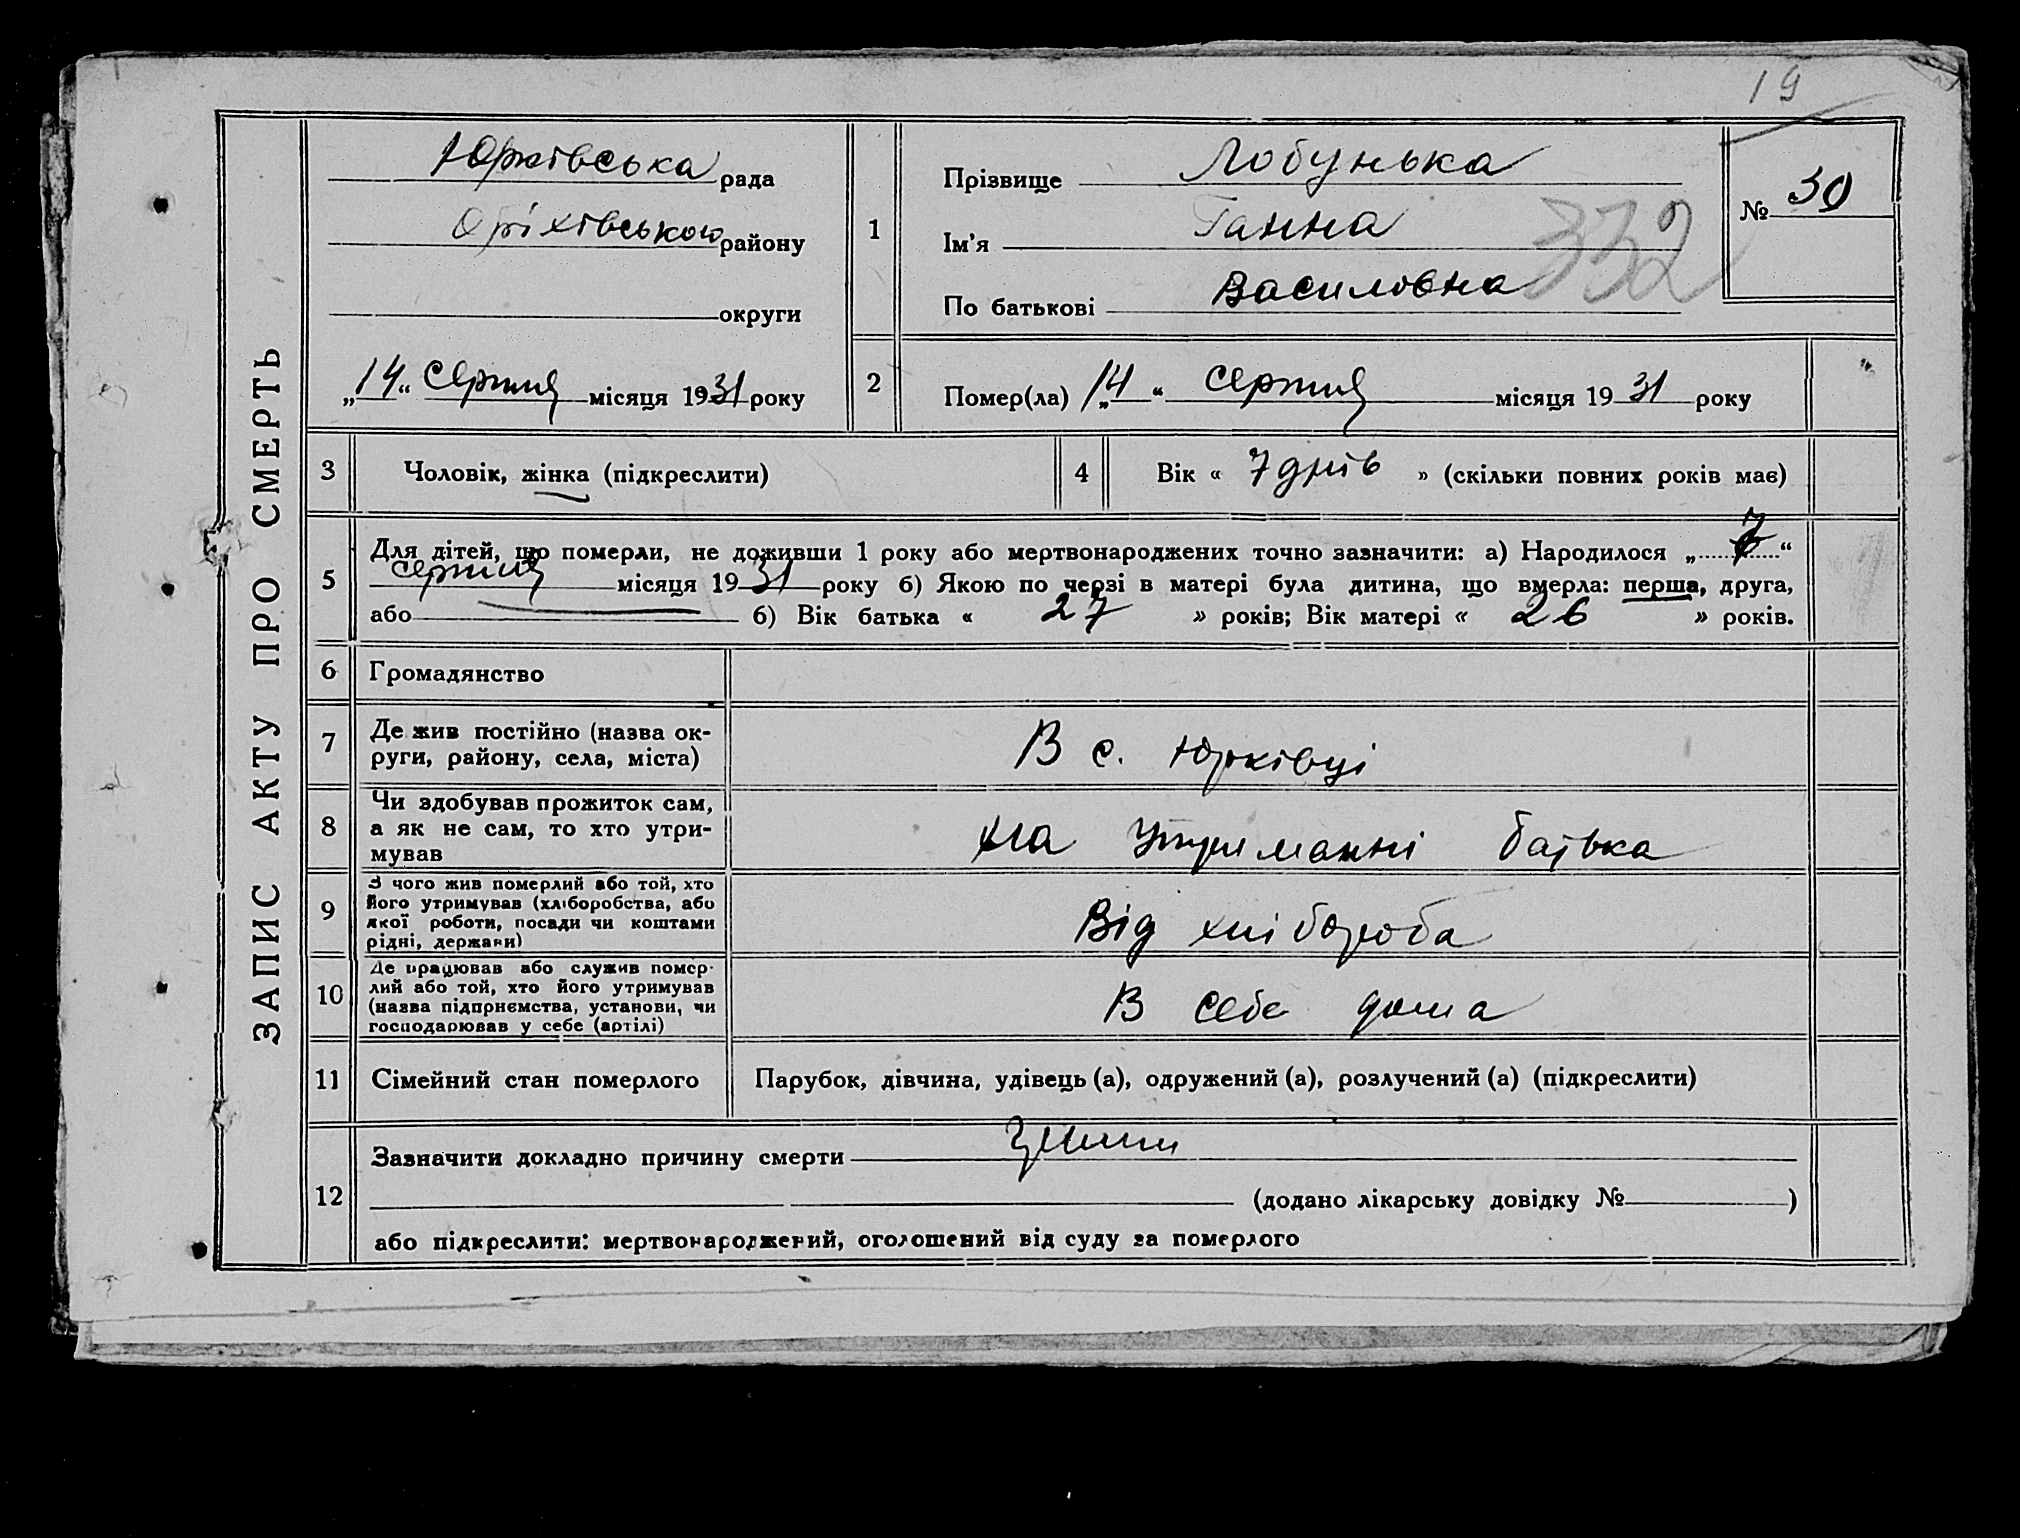 19
ЗАПИС АКТУ ПРО СМЕРТЬ
Юрківська рада
Оріхівського району
округи
„14“ серпня місяця 1931 року
1
Прізвище Лобунька
Ім’я Ганна
По батькові Василовна
332
№ 30
2
Помер(ла) „14“ серпня місяця 1931 року
3 Чоловік, жінка (підкреслити)
4 Вік « 7 днів » (скільки повних років має)
5 Для дітей, що померли, не доживши 1 року або мертвонароджених точно зазначити: а) Народилося „7“
серпня місяця 1931 року б) Якою по черзі в матері була дитина, що вмерла: перша, друга,
або б) Вік батька « 27 » років; Вік матері « 26 » років.
6 Громадянство
7 Де жив постійно (назва ок-
руги, району, села, міста)
В с. Юрківці
8 Чи здобував прожиток сам,
а як не сам, то хто утри-
мував
на утриманні батька
9 З чого жив померлий або той, хто
його утримував (хліборобства, або
якої роботи, посади чи коштами
рідні, держави)
Від хлібороба
10 Де працював або служив помер-
лий або той, хто його утримував
(назва підприємства, установи, чи
господарював у себе (артілі)
В себе дома
11 Сімейний стан померлого
Парубок, дівчина, удівець (а), одружений (а), розлучений (а) (підкреслити)
12 Зазначити докладно причину смерти
(додано лікарську довідку № )
або підкреслити: мертвонароджений, оголошений від суду за померлого